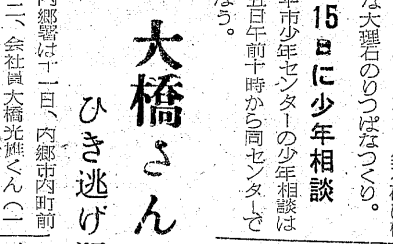 な大理石のりっぱなつくり。
15日に少年相談
年市少年センターの少年相談は
五日午前十時から同センターで
なう。
大橋さん
ひき逃げ
内郷署は十一日、内郷市内町前
二、会社員大橋光雄くん(一